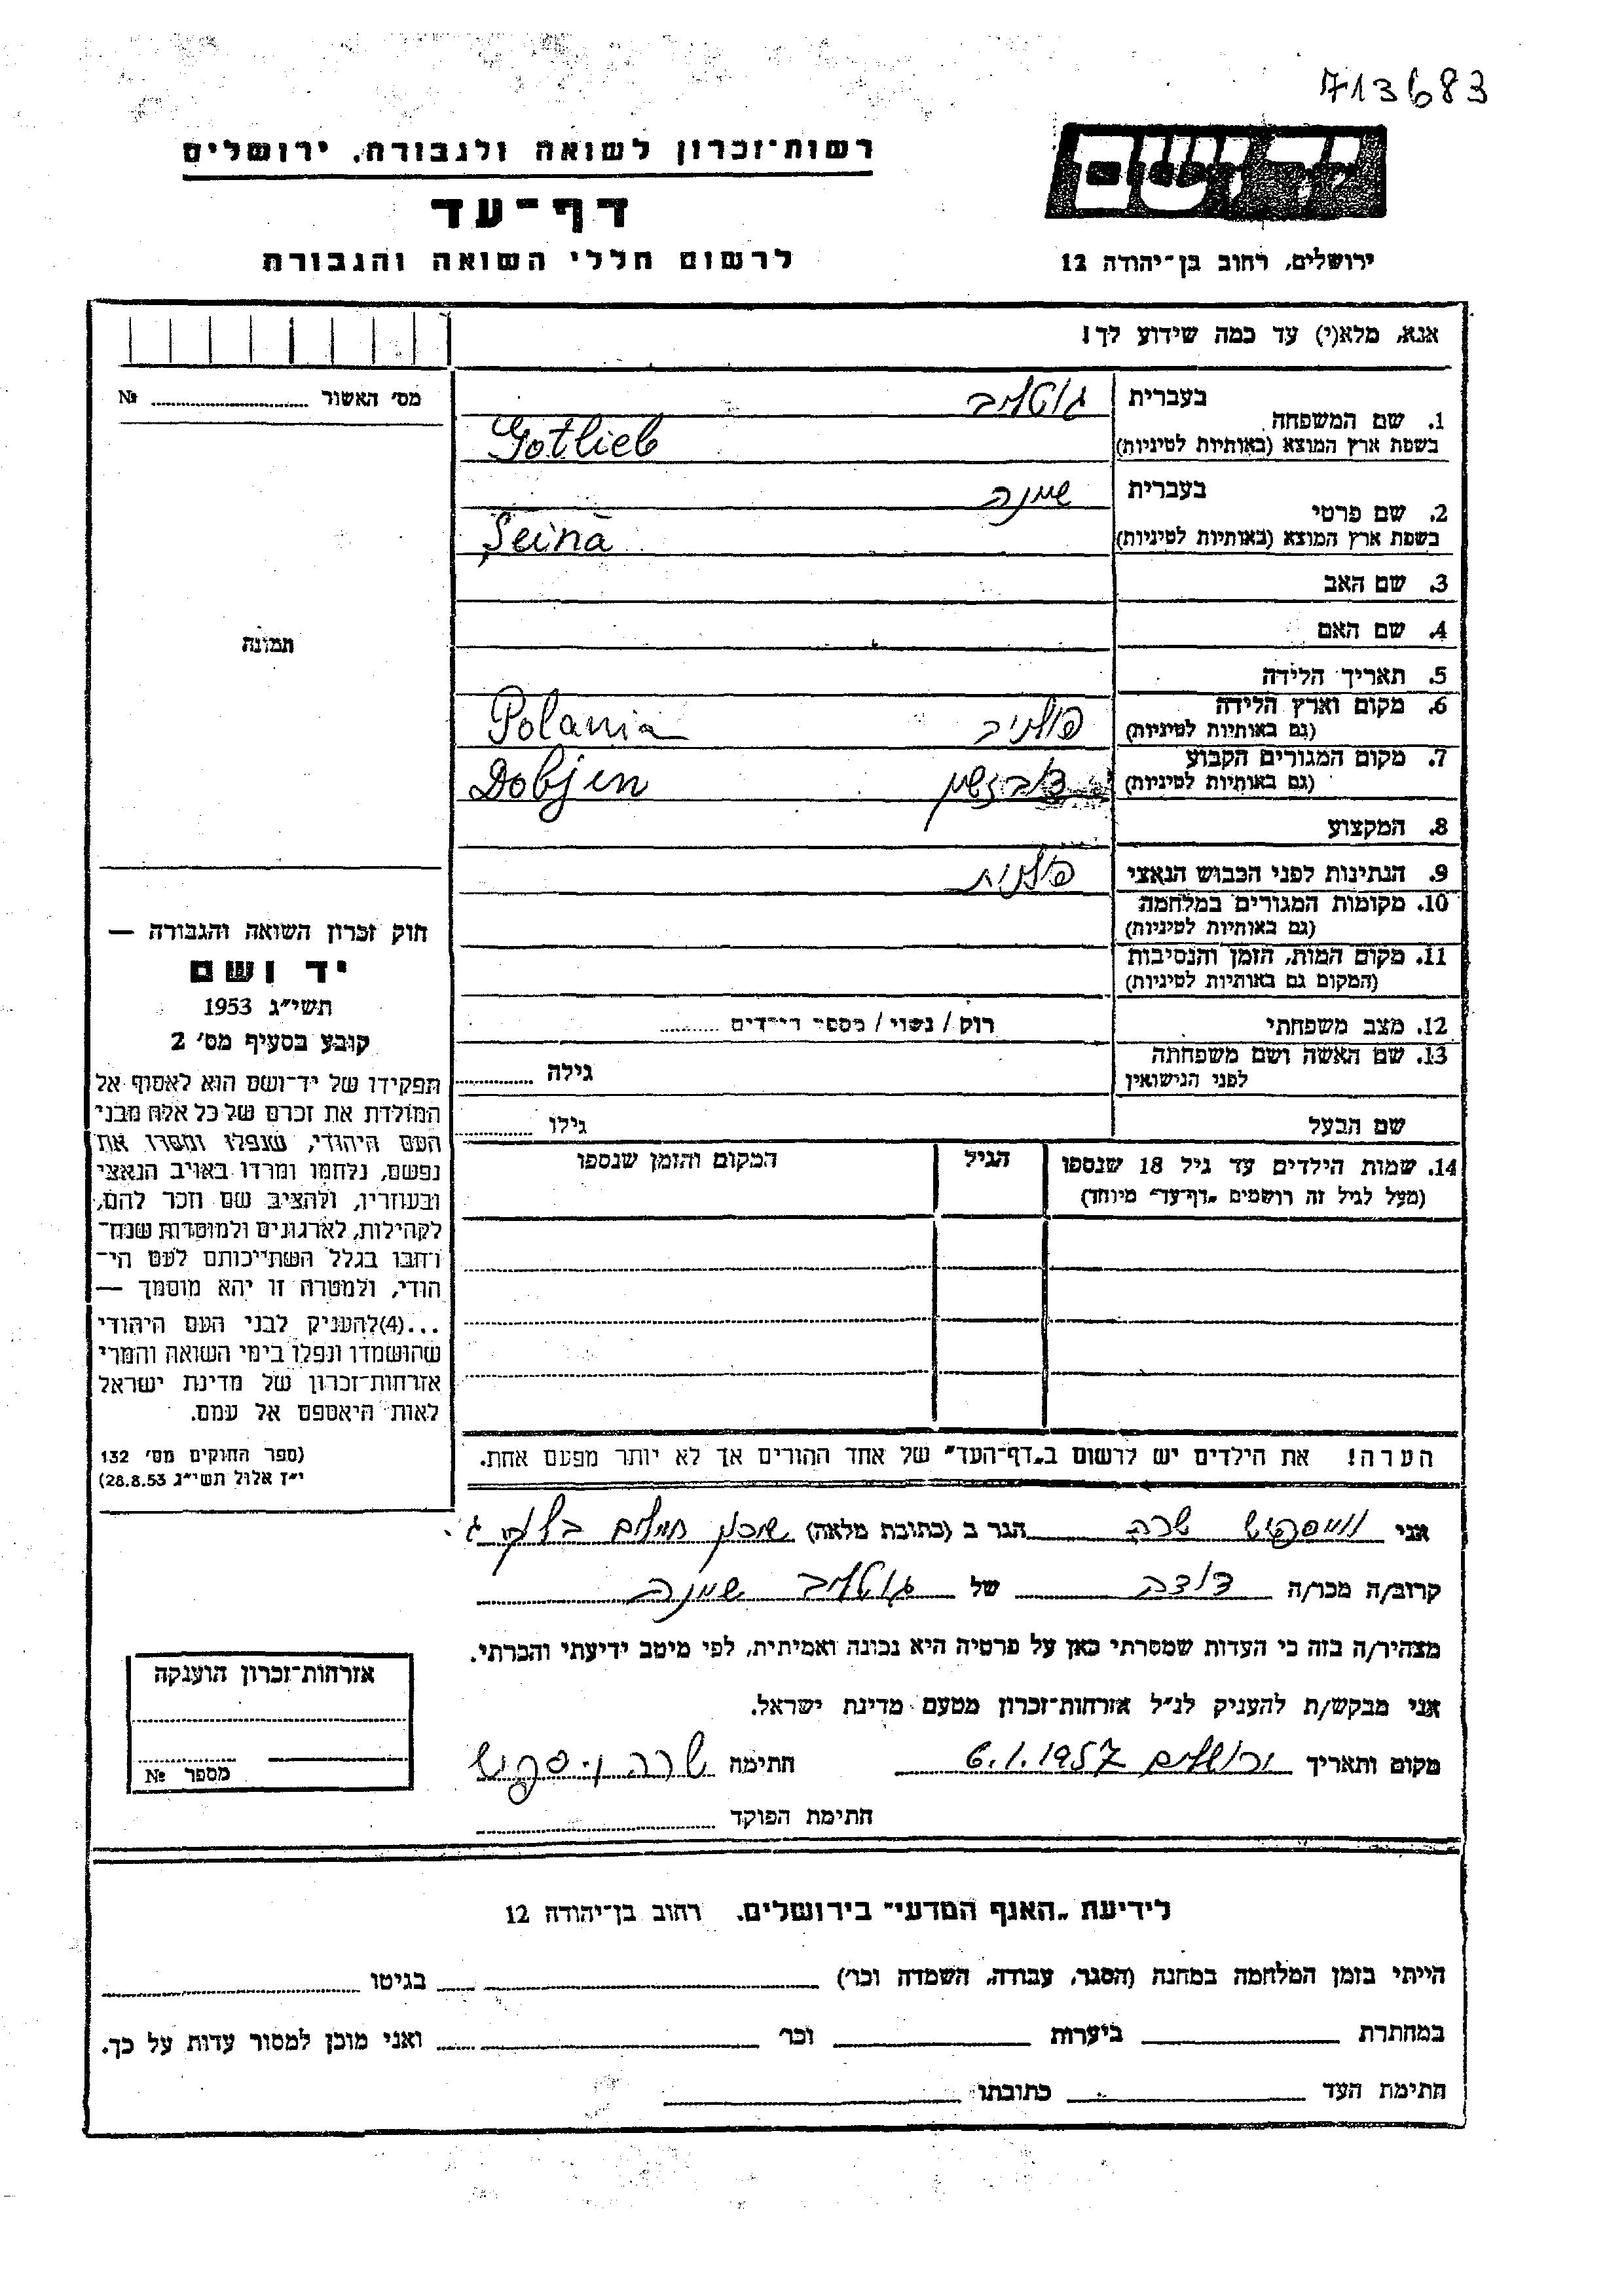 713683
רשות־זכרון לשואה ולגבורה, ירושלים
יד ושם
דף־עד
לרשום חללי השואה והגבורה
ירושלים, רחוב בן־יהודה 12
אנא, מלא(י) עד כמה שידוע לך!
מס׳ האשור № ........
1. שם המשפחה בעברית גוטליב
בשפת ארץ המוצא (באותיות לטיניות) Gotlieb
2. שם פרטי בעברית שיינה
בשפת ארץ המוצא (באותיות לטיניות) Şeina
3. שם האב
4. שם האם
תמונה
5. תאריך הלידה
6. מקום וארץ הלידה פולניה Polania
(גם באותיות לטיניות)
7. מקום המגורים הקבוע Dobjen
(גם באותיות לטיניות)
8. המקצוע
9. הנתינות לפני הכבוש הנאצי פולנית
10. מקומות המגורים במלחמה
(גם באותיות לטיניות)
11. מקום המות, הזמן והנסיבות
(המקום גם באותיות לטיניות)
12. מצב משפחתי רוק / נשוי / מספר הילדים ........
13. שם האשה ושם משפחתה
לפני הנישואין גילה ........
שם הבעל גילו ........
14. שמות הילדים עד גיל 18 שנספו הגיל המקום והזמן שנספו
(מעל לגיל זה רושמים „דף־עד״ מיוחד)
חוק זכרון השואה והגבורה —
יד ושם
תשי״ג 1953
קובע בסעיף מס׳ 2
תפקידו של יד־ושם הוא לאסוף אל
המולדת את זכרם של כל אלה מבני
העם היהודי, שנפלו ומסרו את
נפשם, נלחמו ומרדו באויב הנאצי
ובעוזריו, ולהציב שם וזכר להם,
לקהילות, לארגונים ולמוסדות שנח־
רבו בגלל השתייכותם לעם הי־
הודי, ולמטרה זו יהא מוסמך —
...(4)להעניק לבני העם היהודי
שהושמדו ונפלו בימי השואה והמרי
אזרחות־זכרון של מדינת ישראל
לאות היאספם אל עמם.
(ספר החוקים מס׳ 132
י״ז אלול תשי״ג 28.8.53)
הערה! את הילדים יש לרשום ב„דף־העד״ של אחד ההורים אך לא יותר מפעם אחת.
אני שרה הגר ב (כתובת מלאה) שכון
קרוב/ה מכר/ה דודה של גוטליב שיינה
מצהיר/ה בזה כי העדות שמסרתי כאן על פרטיה היא נכונה ואמיתית, לפי מיטב ידיעתי והכרתי.
אני מבקש/ת להעניק לנ״ל אזרחות־זכרון מטעם מדינת ישראל.
מקום ותאריך ירושלים 6.1.1957 חתימה שרה
חתימת הפוקד
אזרחות־זכרון הוענקה
מספר №
לידיעת „האגף המדעי״ בירושלים. רחוב בן־יהודה 12
הייתי בזמן המלחמה במחנה (הסגר, עבודה, השמדה וכו׳) בגיטו
במחתרת ביערות וכו׳ ואני מוכן למסור עדות על כך.
חתימת העד כתובתו